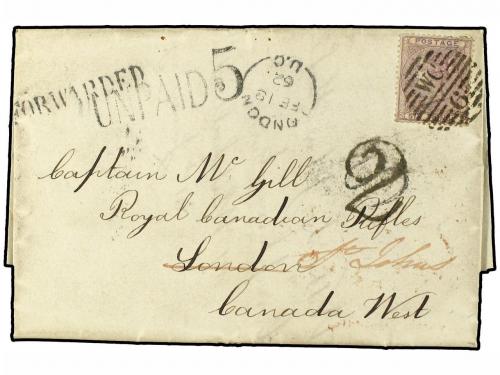 FORWARDED
UNPAID 5
LONDON
FE 19
62
U.C
POSTAGE
WC
2
Captain Mc Gill
Royal Canadian Rifles
London St Johns
Canada West